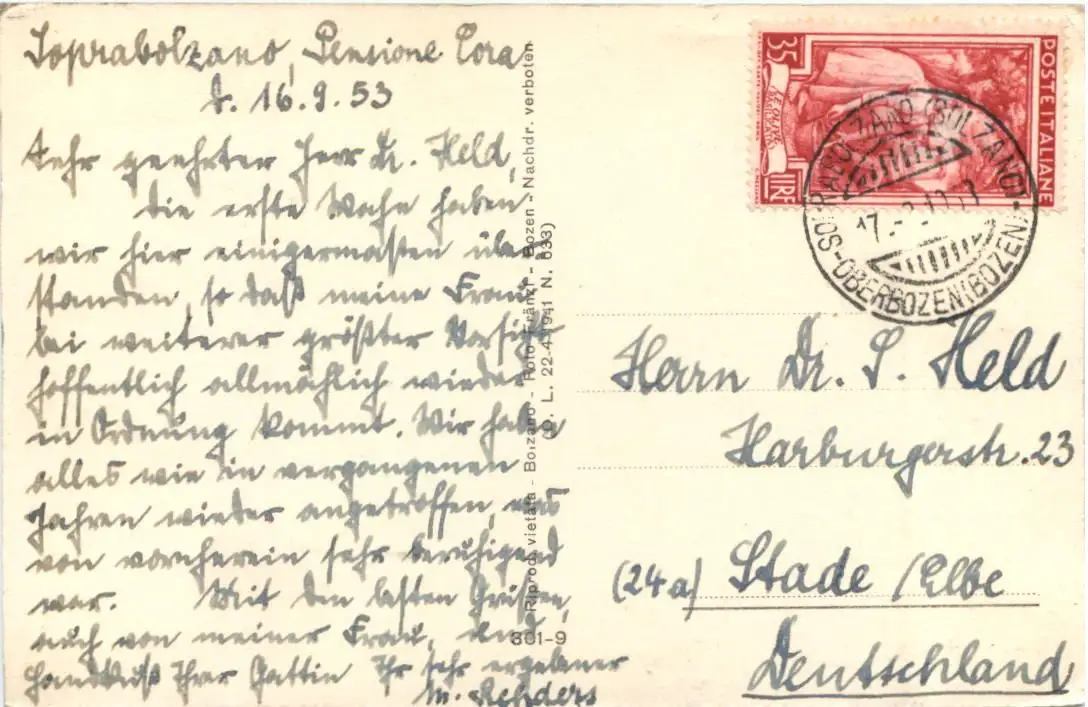 Soprabolzano, Pensione Cora
d. 16.9.53
Sehr geehrter Herr Dr. Held,
die erste Woche haben
wir hier einigermaßen über-
standen, so daß meine Frau
bei weiterer größter Vorsicht
hoffentlich allmählich wieder
in Ordnung kommt. Wir haben
alles wie in vergangenen
Jahren wieder angetroffen, was
von vornherein sehr beruhigend
war. Mit den besten Grüßen,
auch von meiner Frau, und
Handkuß Ihrer Gattin Ihr sehr ergebener
M. Rehders
Riprod. vietata - Bolzano - Foto Fränzl - Bozen - Nachdr. verboten
(D. L. 22-4-1941 N. 633)
301-9
35
LIRE
POSTE ITALIANE
SOPRABOLZANO (BOLZANO)
OBERBOZEN (BOZEN)
Herrn Dr. S. Held
Harburgerstr. 23
(24a) Stade /Elbe
Deutschland